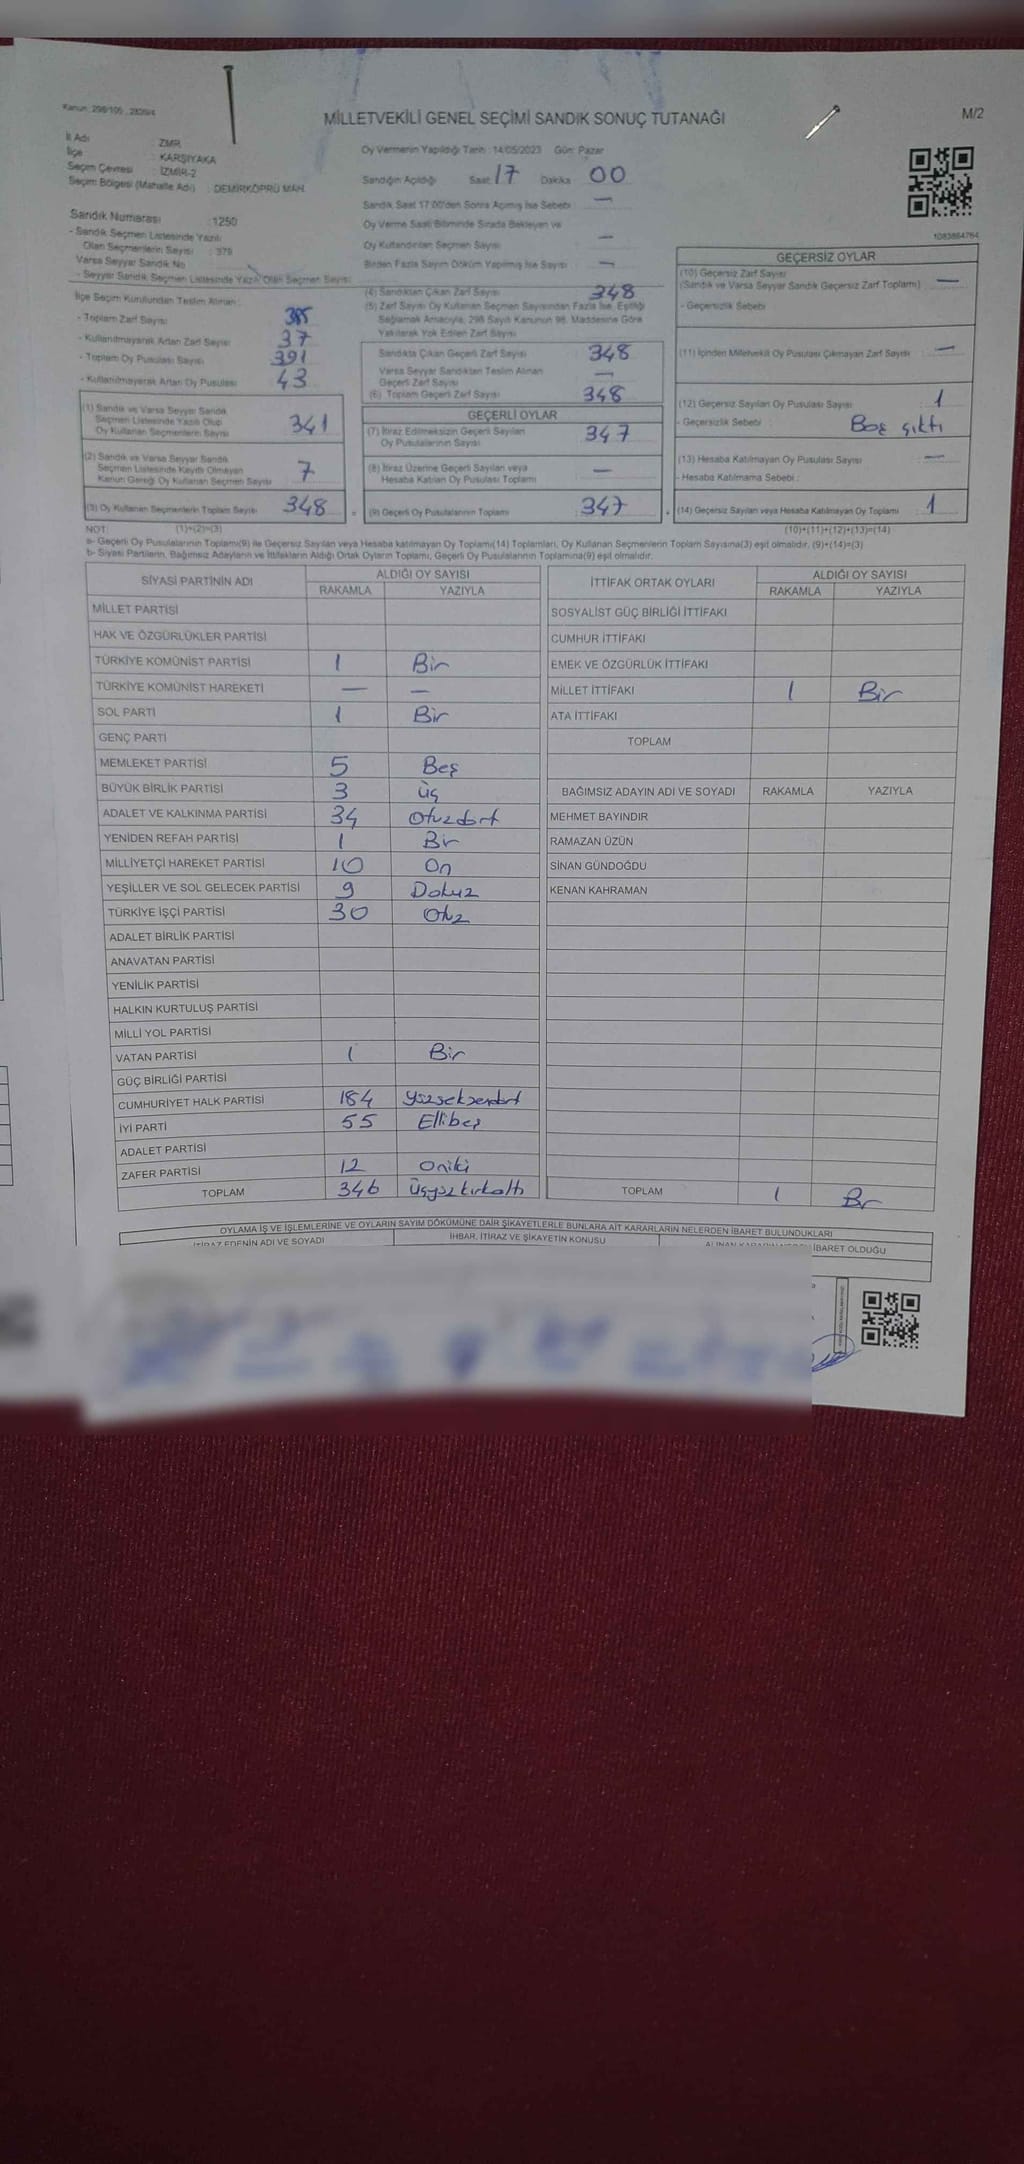 Kanun: 298/105, 2839/4
MİLLETVEKİLİ GENEL SEÇİMİ SANDIK SONUÇ TUTANAĞI
M/2
İl Adı : İZMİR
İlçe : KARŞIYAKA
Seçim Çevresi : İZMİR-2
Seçim Bölgesi (Mahalle Adı) : DEMİRKÖPRÜ MAH.
Sandık Numarası : 1250
- Sandık Seçmen Listesinde Yazılı
Olan Seçmenlerin Sayısı : 379
Varsa Seyyar Sandık No
- Seyyar Sandık Seçmen Listesinde Yazılı Olan Seçmen Sayısı:
İlçe Seçim Kurulundan Teslim Alınan :
- Toplam Zarf Sayısı 385
- Kullanılmayarak Artan Zarf Sayısı 37
- Toplam Oy Pusulası Sayısı 391
- Kullanılmayarak Artan Oy Pusulası 43
(1) Sandık ve Varsa Seyyar Sandık
Seçmen Listesinde Yazılı Olup
Oy Kullanan Seçmenlerin Sayısı 341
(2) Sandık ve Varsa Seyyar Sandık
Seçmen Listesinde Kayıtlı Olmayan
Kanun Gereği Oy Kullanan Seçmen Sayısı 7
(3) Oy Kullanan Seçmenlerin Toplam Sayısı 348 =
Oy Vermenin Yapıldığı Tarih : 14/05/2023 Gün: Pazar
Sandığın Açıldığı Saat 17 Dakika 00
Sandık Saat 17:00'den Sonra Açılmış İse Sebebi —
Oy Verme Saati Bitiminde Sırada Bekleyen ve
Oy Kullandırılan Seçmen Sayısı —
Birden Fazla Sayım Döküm Yapılmış İse Sayısı —
(4) Sandıktan Çıkan Zarf Sayısı 348
(5) Zarf Sayısı Oy Kullanan Seçmen Sayısından Fazla İse, Eşitliği
Sağlamak Amacıyla, 298 Sayılı Kanunun 98. Maddesine Göre
Yakılarak Yok Edilen Zarf Sayısı
Sandıkta Çıkan Geçerli Zarf Sayısı 348
Varsa Seyyar Sandıktan Teslim Alınan
Geçerli Zarf Sayısı —
(6) Toplam Geçerli Zarf Sayısı 348
GEÇERLİ OYLAR
(7) İtiraz Edilmeksizin Geçerli Sayılan
Oy Pusulalarının Sayısı 347
(8) İtiraz Üzerine Geçerli Sayılan veya
Hesaba Katılan Oy Pusulası Toplamı —
(9) Geçerli Oy Pusulalarının Toplamı 347
1083864764
GEÇERSİZ OYLAR
(10) Geçersiz Zarf Sayısı
(Sandık ve Varsa Seyyar Sandık Geçersiz Zarf Toplamı) —
- Geçersizlik Sebebi
(11) İçinden Milletvekili Oy Pusulası Çıkmayan Zarf Sayısı —
(12) Geçersiz Sayılan Oy Pusulası Sayısı 1
- Geçersizlik Sebebi : Boş çıktı
(13) Hesaba Katılmayan Oy Pusulası Sayısı —
- Hesaba Katılmama Sebebi :
(14) Geçersiz Sayılan veya Hesaba Katılmayan Oy Toplamı 1
NOT: (1)+(2)=(3)
(10)+(11)+(12)+(13)=(14)
a- Geçerli Oy Pusulalarının Toplamı(9) ile Geçersiz Sayılan veya Hesaba katılmayan Oy Toplamı(14) Toplamları, Oy Kullanan Seçmenlerin Toplam Sayısına(3) eşit olmalıdır. (9)+(14)=(3)
b- Siyasi Partilerin, Bağımsız Adayların ve İttifakların Aldığı Ortak Oyların Toplamı, Geçerli Oy Pusulalarının Toplamına(9) eşit olmalıdır.
SİYASİ PARTİNİN ADI ALDIĞI OY SAYISI
RAKAMLA YAZIYLA
MİLLET PARTİSİ
HAK VE ÖZGÜRLÜKLER PARTİSİ
TÜRKİYE KOMÜNİST PARTİSİ 1 Bir
TÜRKİYE KOMÜNİST HAREKETİ — —
SOL PARTİ 1 Bir
GENÇ PARTİ
MEMLEKET PARTİSİ 5 Beş
BÜYÜK BİRLİK PARTİSİ 3 üç
ADALET VE KALKINMA PARTİSİ 34 Otuzdört
YENİDEN REFAH PARTİSİ 1 Bir
MİLLİYETÇİ HAREKET PARTİSİ 10 On
YEŞİLLER VE SOL GELECEK PARTİSİ 9 Dokuz
TÜRKİYE İŞÇİ PARTİSİ 30 Otuz
ADALET BİRLİK PARTİSİ
ANAVATAN PARTİSİ
YENİLİK PARTİSİ
HALKIN KURTULUŞ PARTİSİ
MİLLİ YOL PARTİSİ
VATAN PARTİSİ 1 Bir
GÜÇ BİRLİĞİ PARTİSİ
CUMHURİYET HALK PARTİSİ 184 Yüzseksendört
İYİ PARTİ 55 Ellibeş
ADALET PARTİSİ
ZAFER PARTİSİ 12 Oniki
TOPLAM 346 üçyüzkırkaltı
İTTİFAK ORTAK OYLARI ALDIĞI OY SAYISI
RAKAMLA YAZIYLA
SOSYALİST GÜÇ BİRLİĞİ İTTİFAKI
CUMHUR İTTİFAKI
EMEK VE ÖZGÜRLÜK İTTİFAKI
MİLLET İTTİFAKI 1 Bir
ATA İTTİFAKI
TOPLAM
BAĞIMSIZ ADAYIN ADI VE SOYADI RAKAMLA YAZIYLA
MEHMET BAYINDIR
RAMAZAN ÜZÜN
SİNAN GÜNDOĞDU
KENAN KAHRAMAN
TOPLAM 1 Bir
OYLAMA İŞ VE İŞLEMLERİNE VE OYLARIN SAYIM DÖKÜMÜNE DAİR ŞİKAYETLERLE BUNLARA AİT KARARLARIN NELERDEN İBARET BULUNDUKLARI
İTİRAZ EDENİN ADI VE SOYADI İHBAR, İTİRAZ VE ŞİKAYETİN KONUSU İBARET OLDUĞU